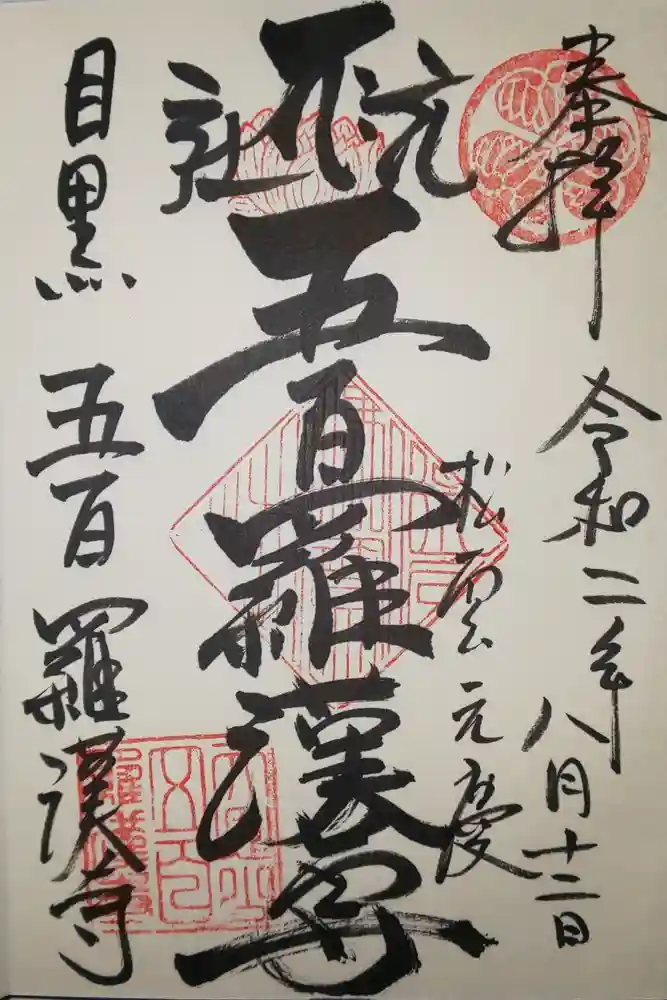 奉拝
令和二年八月十二日
松雲元慶
五百羅漢
目黒 五百羅漢寺